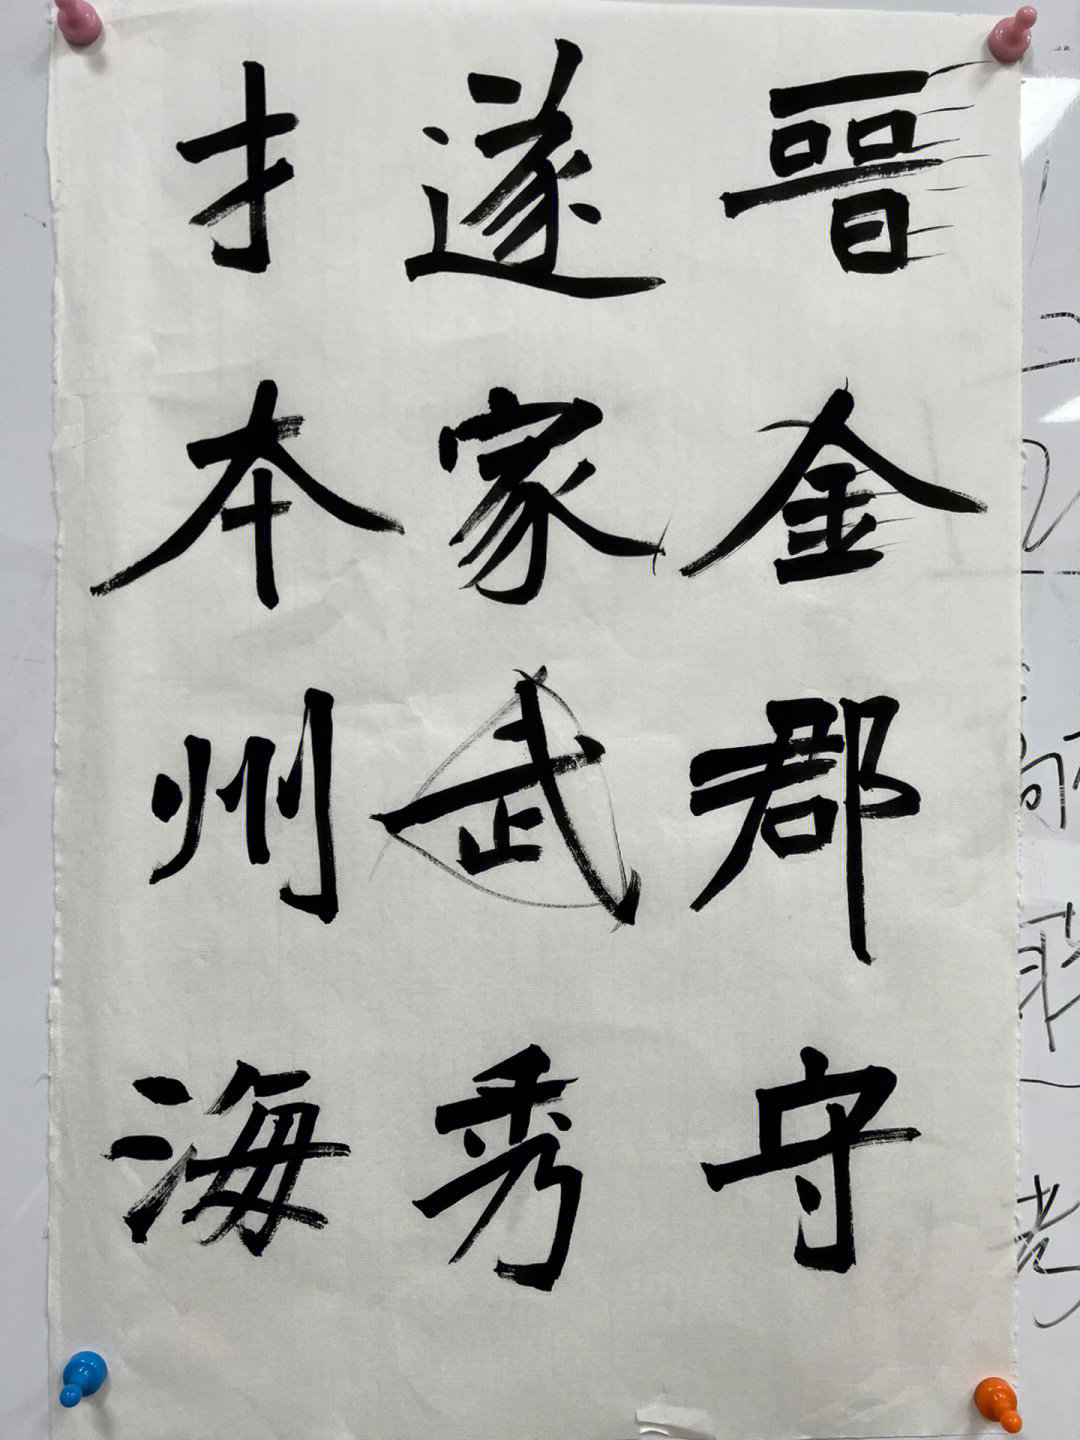 晉金郡守
遂家武秀
才本州海